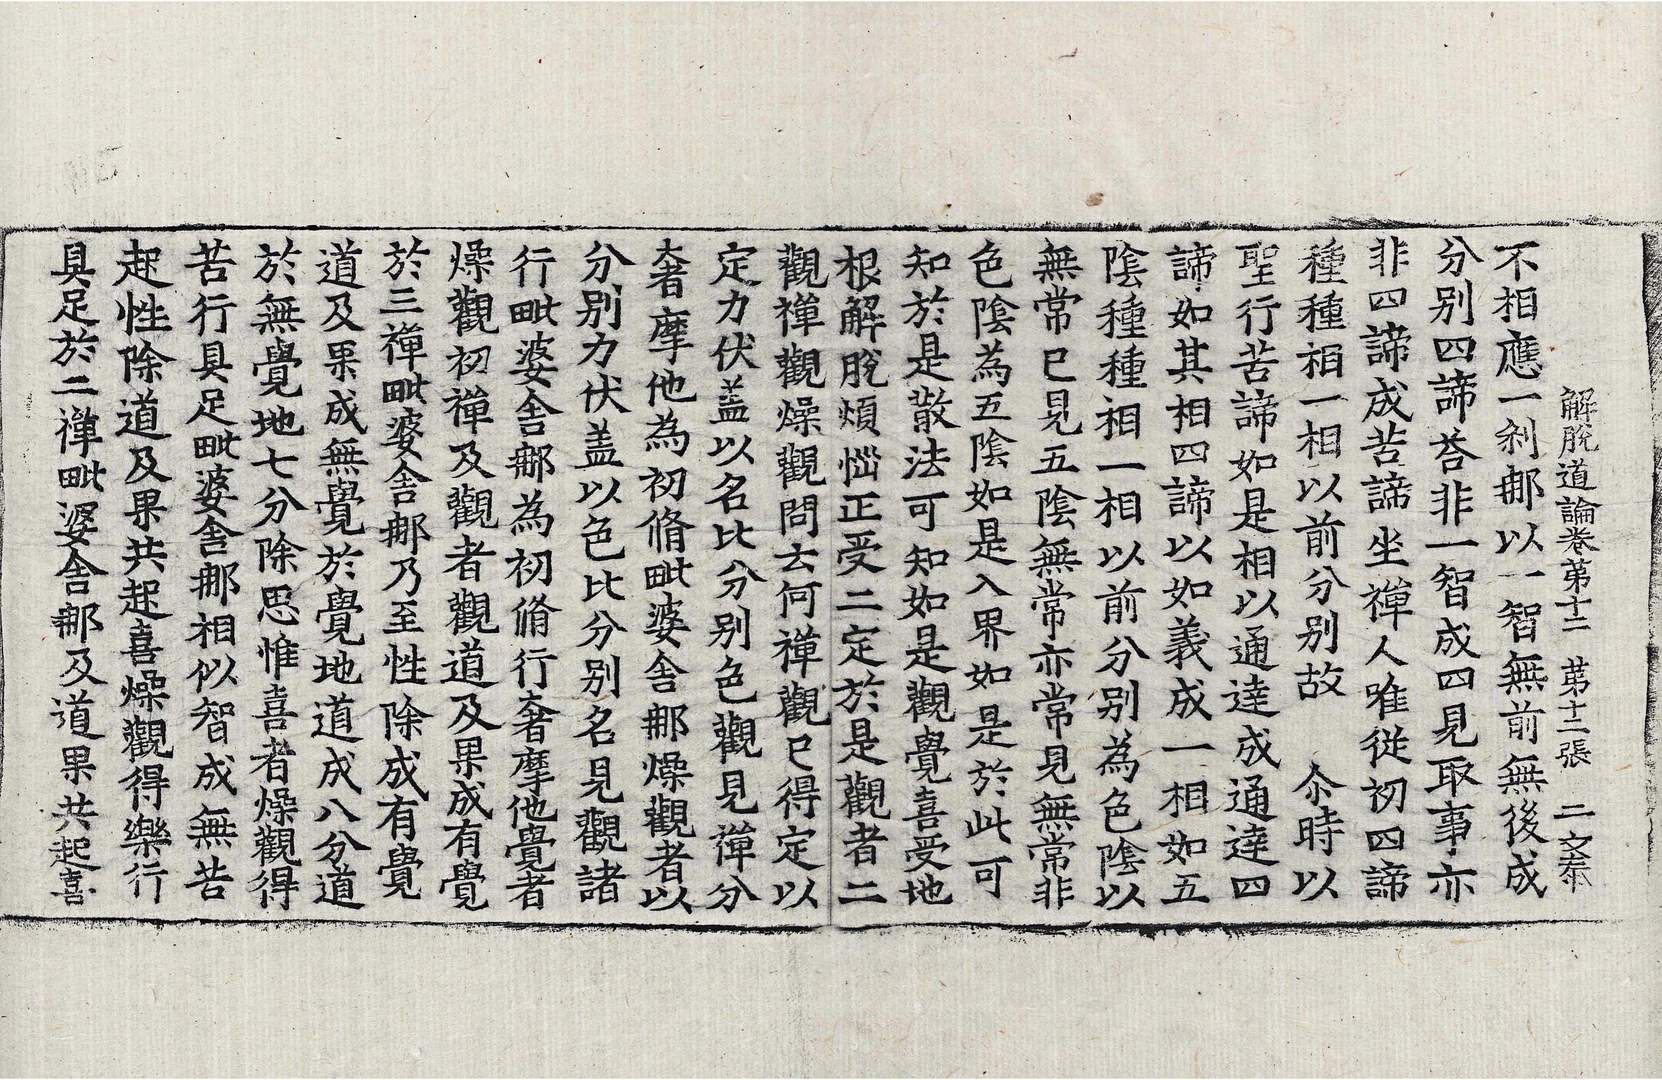 解脫道論卷第十二　第十二張　二文奉
不相應一剎那以一智無前無後成
分別四諦荅非一智成四見取事亦
非四諦成苦諦坐禪人唯從初四諦
種種相一相以前分別故　尒時以
聖行苦諦如是相以通達成通達四
諦如其相四諦以如義成一相如五
陰種種相一相以前分別為色陰以
無常已見五陰無常亦常見無常非
色陰為五陰如是入界如是於此可
知於是散法可知如是觀覺喜受地
根解脫煩惱正受二定於是觀者二
觀禪觀燥觀問云何禪觀已得定以
定力伏蓋以名比分別色觀見禪分
奢摩他為初脩毗婆舍那燥觀者以
分別力伏蓋以色比分別名見觀諸
行毗婆舍那為初脩行奢摩他覺者
燥觀初禪及觀者觀道及果成有覺
於三禪毗婆舍那乃至性除成有覺
道及果成無覺於覺地道成八分道
於無覺地七分除思惟喜者燥觀得
苦行具足毗婆舍那相似智成無苦
起性除道及果共起喜燥觀得樂行
具足於二禪毗婆舍那及道果共起喜